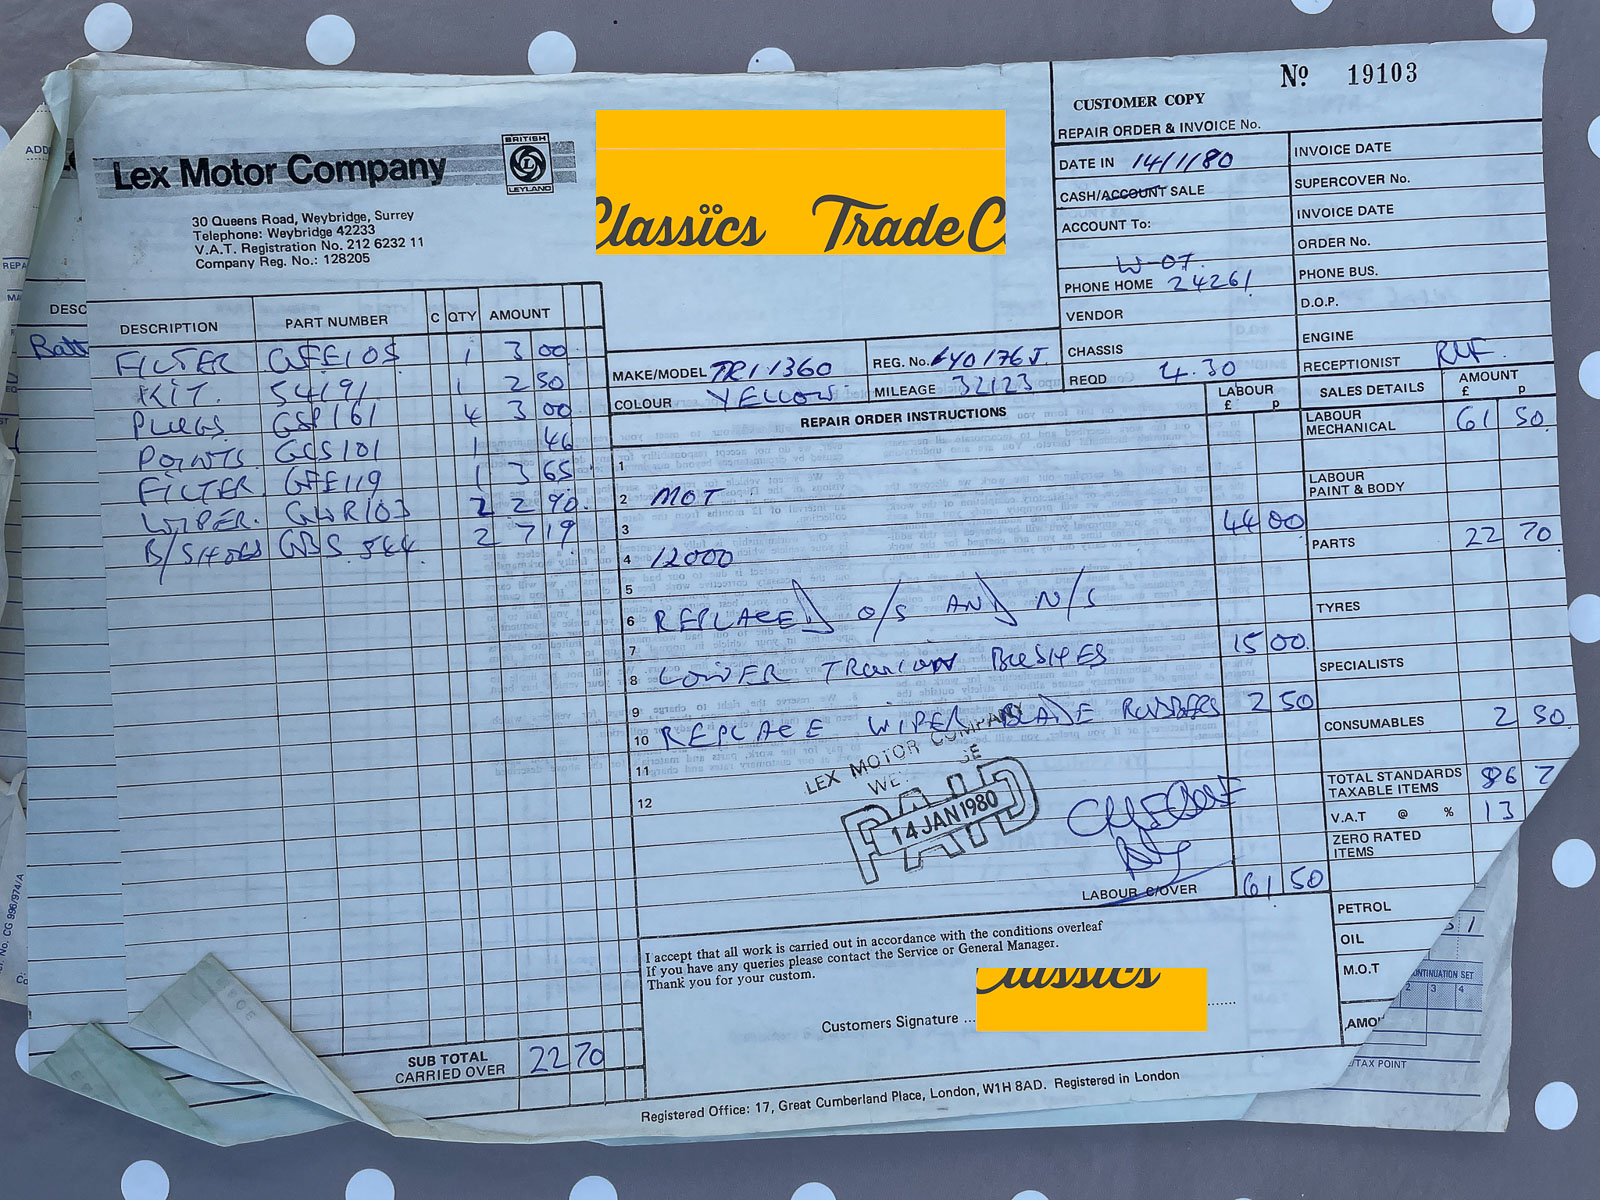 Nº 19103
CUSTOMER COPY
REPAIR ORDER & INVOICE No.
BRITISH
LEYLAND
Lex Motor Company
30 Queens Road, Weybridge, Surrey
Telephone: Weybridge 42233
V.A.T. Registration No. 212 6232 11
Company Reg. No.: 128205
Classics Trade C
DATE IN 14/1/80
CASH/ACCOUNT SALE
ACCOUNT To:
W-07
PHONE HOME 24261
VENDOR
CHASSIS
REQD 4.30
INVOICE DATE
SUPERCOVER No.
INVOICE DATE
ORDER No.
PHONE BUS.
D.O.P.
ENGINE
RECEPTIONIST
MAKE/MODEL TRI 1360
REG. No.
COLOUR YELLOW
MILEAGE 32123
DESCRIPTION PART NUMBER C QTY AMOUNT
FILTER GFE105 1 3 00
KIT. 54191 1 2 50
PLUGS GSP161 4 3 00
POINTS GCS101 1 46
FILTER GFE119 1 3 65
WIPER. GWR103 2 2 90
B/SHOES GBS 544 2 7 19
SUB TOTAL
CARRIED OVER 22 70
REPAIR ORDER INSTRUCTIONS
LABOUR
£ p
1
2 MOT
3 44 00
4 12000
5
6 REPLACED O/S AND N/S
7 15 00
8 LOWER TRUNION BUSHES
9 2 50
10 REPLACE WIPER BLADE RUBBERS
11
12
LEX MOTOR COMPANY
PAID
14 JAN 1980
LABOUR C/OVER 61 50
I accept that all work is carried out in accordance with the conditions overleaf
If you have any queries please contact the Service or General Manager.
Thank you for your custom.
Classics
Customers Signature
Registered Office: 17, Great Cumberland Place, London, W1H 8AD. Registered in London
SALES DETAILS AMOUNT
£ p
LABOUR
MECHANICAL 61 50
LABOUR
PAINT & BODY
PARTS 22 70
TYRES
SPECIALISTS
CONSUMABLES 2 50
TOTAL STANDARDS
TAXABLE ITEMS 86 7
V.A.T @ % 13
ZERO RATED
ITEMS
PETROL
OIL
M.O.T
AMO
NTINUATION SET
2 3 4
/TAX POINT
ADD
REPA
DESC
Batt
No. CG 996/974/A